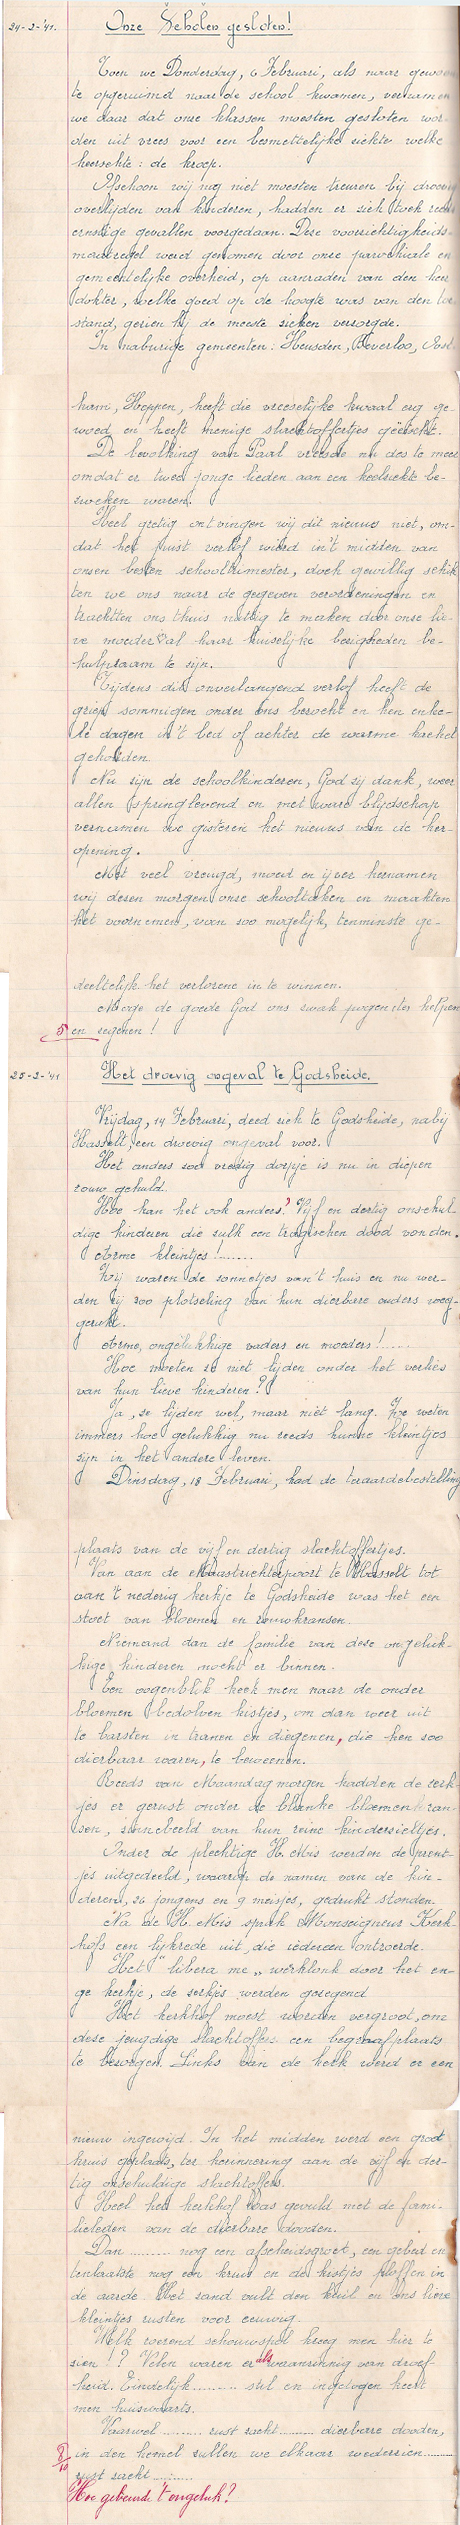 24-2-'41. Onze Scholen gesloten!
Toen we Donderdag, 6 Februari, als naar gewoon
te opgeruimd naar de school kwamen, vernamen
we daar dat onze klassen moesten gesloten wor-
den uit vrees voor een besmettelijke ziekte welke
heerschte: de kroep.
Ofschoon wij nog niet moesten treuren bij droevig
overlijden van kinderen, hadden er zich toch reeds
ernstige gevallen voorgedaan. Deze voorzichtigheids-
maatregel werd genomen door onze parochiale en
gemeentelijke overheid, op aanraden van den heer
dokter, welke goed op de hoogte was van den toe-
stand, gezien hij de meeste zieken verzorgde.
In naburige gemeenten: Heusden, Beverloo, Oost-
ham, Heppen, heeft die vreeselijke kwaal erg ge-
woed en heeft menige slachtoffertjes geëischt.
De bevolking van Paal vreesde nu des te meer
omdat er twee jonge lieden aan een keelziekte be-
zweken waren.
Heel gretig ontvingen wij dit nieuws niet, om-
dat het juist verlof wierd in 't midden van
onzen besten schooltrimester, doch gewillig schik
ten we ons naar de gegeven verordeningen en
trachtten ons thuis nuttig te maken door onze lie-
ve moeder al haar huiselijke bezigheden be-
hulpzaam te zijn.
Tijdens dit onverlangend verlof heeft de
griep sommigen onder ons bezocht en hen enke-
le dagen in 't bed of achter de warme kachel
gehouden.
Nu zijn de schoolkinderen, God zij dank, weer
allen springlevend en met ware blijdschap
vernamen we gisteren het nieuws van de her-
opening.
Met veel vreugd, moed en ijver hernamen
wij dezen morgen onze schooltaken en maakten
het voornemen, van zoo mogelijk, tenminste ge-
deeltelijk het verlorene in te winnen.
Moge de goede God ons zwak pogen iets helpen
5 en zegenen!
25-2-'41 Het droevig ongeval te Godsheide.
Vrijdag, 14 Februari, deed zich te Godsheide, nabij
Hasselt, een droevig ongeval voor.
Het anders zoo vredig dorpje is nu in diepen
rouw gehuld.
Hoe kan het ook anders? Vijf en dertig onschul
dige kinderen die zulk een tragischen dood vonden.
Arme kleintjes!.......
Zij waren de zonnetjes van 't huis en nu wer-
den zij zoo plotseling van hun dierbare ouders weg-
gerukt.
Arme, ongelukkige vaders en moeders!......
Hoe moeten ze niet lijden onder het verlies
van hun lieve kinderen?!
Ja, ze lijden wel, maar niet lang. Ze weten
immers hoe gelukkig nu reeds hunne kleintjes
zijn in het andere leven.
Dinsdag, 18 Februari, had de teraardebestelling
plaats van de vijf en dertig slachtoffertjes.
Van aan de Maastrichterpoort te Hasselt tot
aan 't nederig kerkje te Godsheide was het een
stoet van bloemen en rouwkransen.
Niemand dan de familie van deze ongeluk-
kige kinderen mocht er binnen.
Een oogenblik keek men naar de onder
bloemen bedolven kistjes, om dan weer uit
te barsten in tranen en diegenen, die hen zoo
dierbaar waren, te beweenen.
Reeds van Maandagmorgen hadden de zerk-
jes er gerust onder de blanke bloemenkran-
sen, zinnebeeld van hun reine kinderzieltjes.
Onder de plechtige H. Mis werden de prent-
jes uitgedeeld, waarop de namen van de kin-
deren, 26 jongens en 9 meisjes, gedrukt stonden.
Na de H. Mis sprak Monseigneur Kerk-
hofs een lijkrede uit, die iedereen ontroerde.
Het "libera me" weerklonk door het en-
ge kerkje, de zerkjes werden gezegend
Het kerkhof moest worden vergroot, om
deze jeugdige slachtoffers een begraafplaats
te bezorgen. Links van de kerk werd er een
nieuw ingewijd. In het midden werd een groot
kruis geplaatst, ter herinnering aan de vijf en der-
tig onschuldige slachtoffers.
Heel het kerkhof was gevuld met de fami-
lieleden van de dierbare dooden.
Dan ......... nog een afscheidsgroet, een gebed en
tenlaatste nog een kruis en de kistjes ploffen in
de aarde. Het zand vult den kuil en ons lieve
kleintjes rusten voor eeuwig.
Welk roerend schouwspel kreeg men hier te
zien!? Velen waren er als waanzinnig van droef-
heid. Eindelijk.......... stil en ingetogen keert
men huiswaarts.
Vaarwel ......... rust zacht ........ dierbare dooden,
8/10 in den hemel zullen we elkaar wederzien.......
rust zacht .........
Hoe gebeurde 't ongeluk?